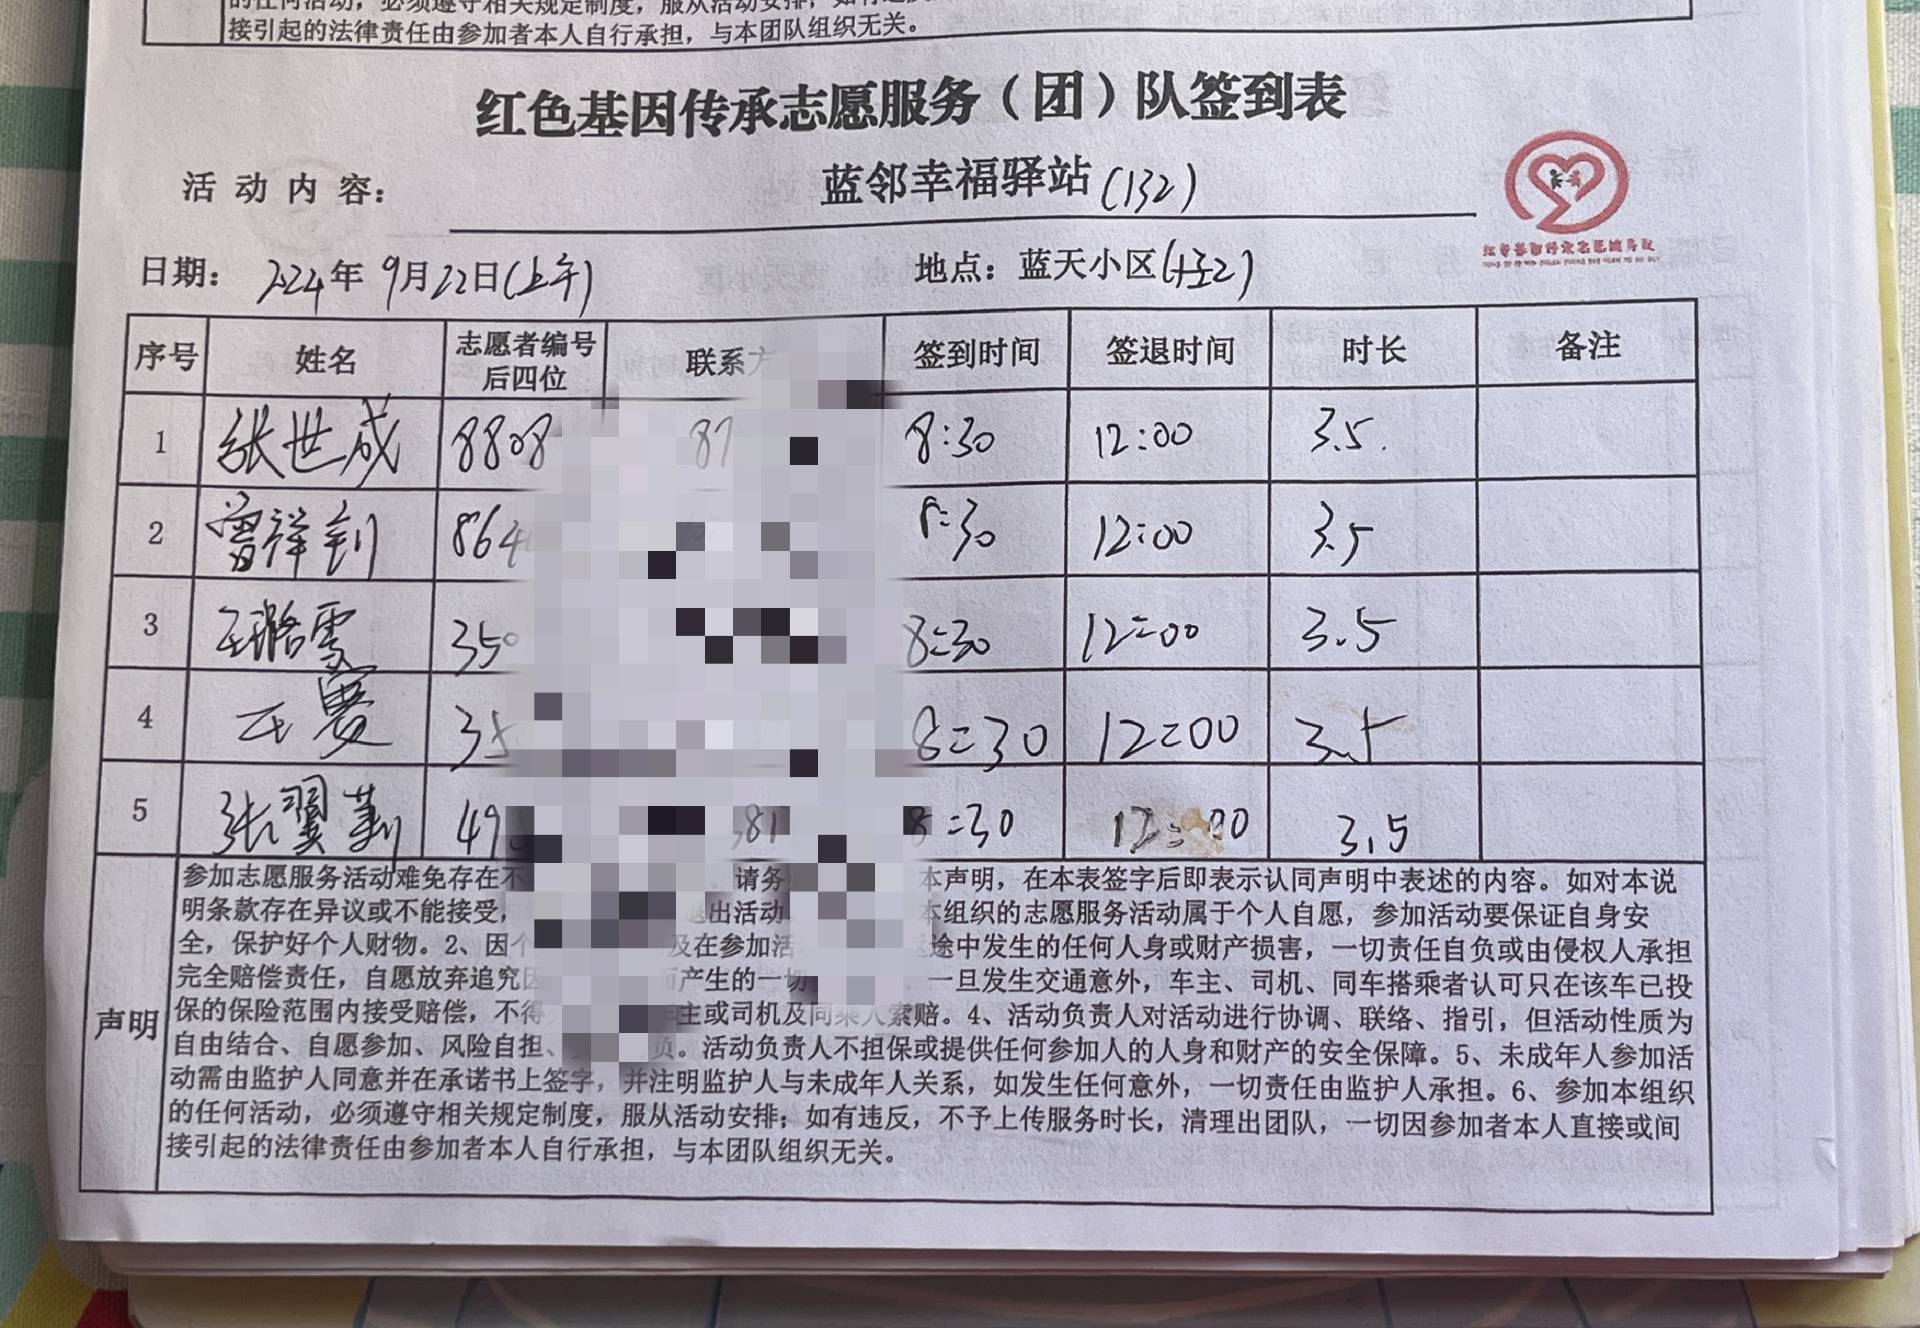 的任何活动，必须遵守相关规定制度，服从活动安排；如有违反
接引起的法律责任由参加者本人自行承担，与本团队组织无关。
红色基因传承志愿服务（团）队签到表
活动内容： 蓝邻幸福驿站(132)
日期： 2024年9月22日(上午) 地点：蓝天小区
序号 姓名 志愿者编号后四位 联系方 签到时间 签退时间 时长 备注
1 张世成 8808 87 8:30 12:00 3.5
2 曾祥钊 864 8:30 12:00 3.5
3 王璐雯 350 8:30 12:00 3.5
4 王赛 35 8:30 12:00 3.5
5 张翼 49 81 8:30 12:00 3.5
声明
参加志愿服务活动难免存在不 请务 本声明，在本表签字后即表示认同声明中表述的内容。如对本说
明条款存在异议或不能接受， 退出活动 本组织的志愿服务活动属于个人自愿，参加活动要保证自身安
全，保护好个人财物。2、因个 及在参加活 途中发生的任何人身或财产损害，一切责任自负或由侵权人承担
完全赔偿责任，自愿放弃追究因 而产生的一切 一旦发生交通意外，车主、司机、同车搭乘者认可只在该车已投
保的保险范围内接受赔偿，不得 车主或司机及同乘人索赔。4、活动负责人对活动进行协调、联络、指引，但活动性质为
自由结合、自愿参加、风险自担、 负。活动负责人不担保或提供任何参加人的人身和财产的安全保障。5、未成年人参加活
动需由监护人同意并在承诺书上签字，并注明监护人与未成年人关系，如发生任何意外，一切责任由监护人承担。6、参加本组织
的任何活动，必须遵守相关规定制度，服从活动安排；如有违反，不予上传服务时长，清理出团队，一切因参加者本人直接或间
接引起的法律责任由参加者本人自行承担，与本团队组织无关。